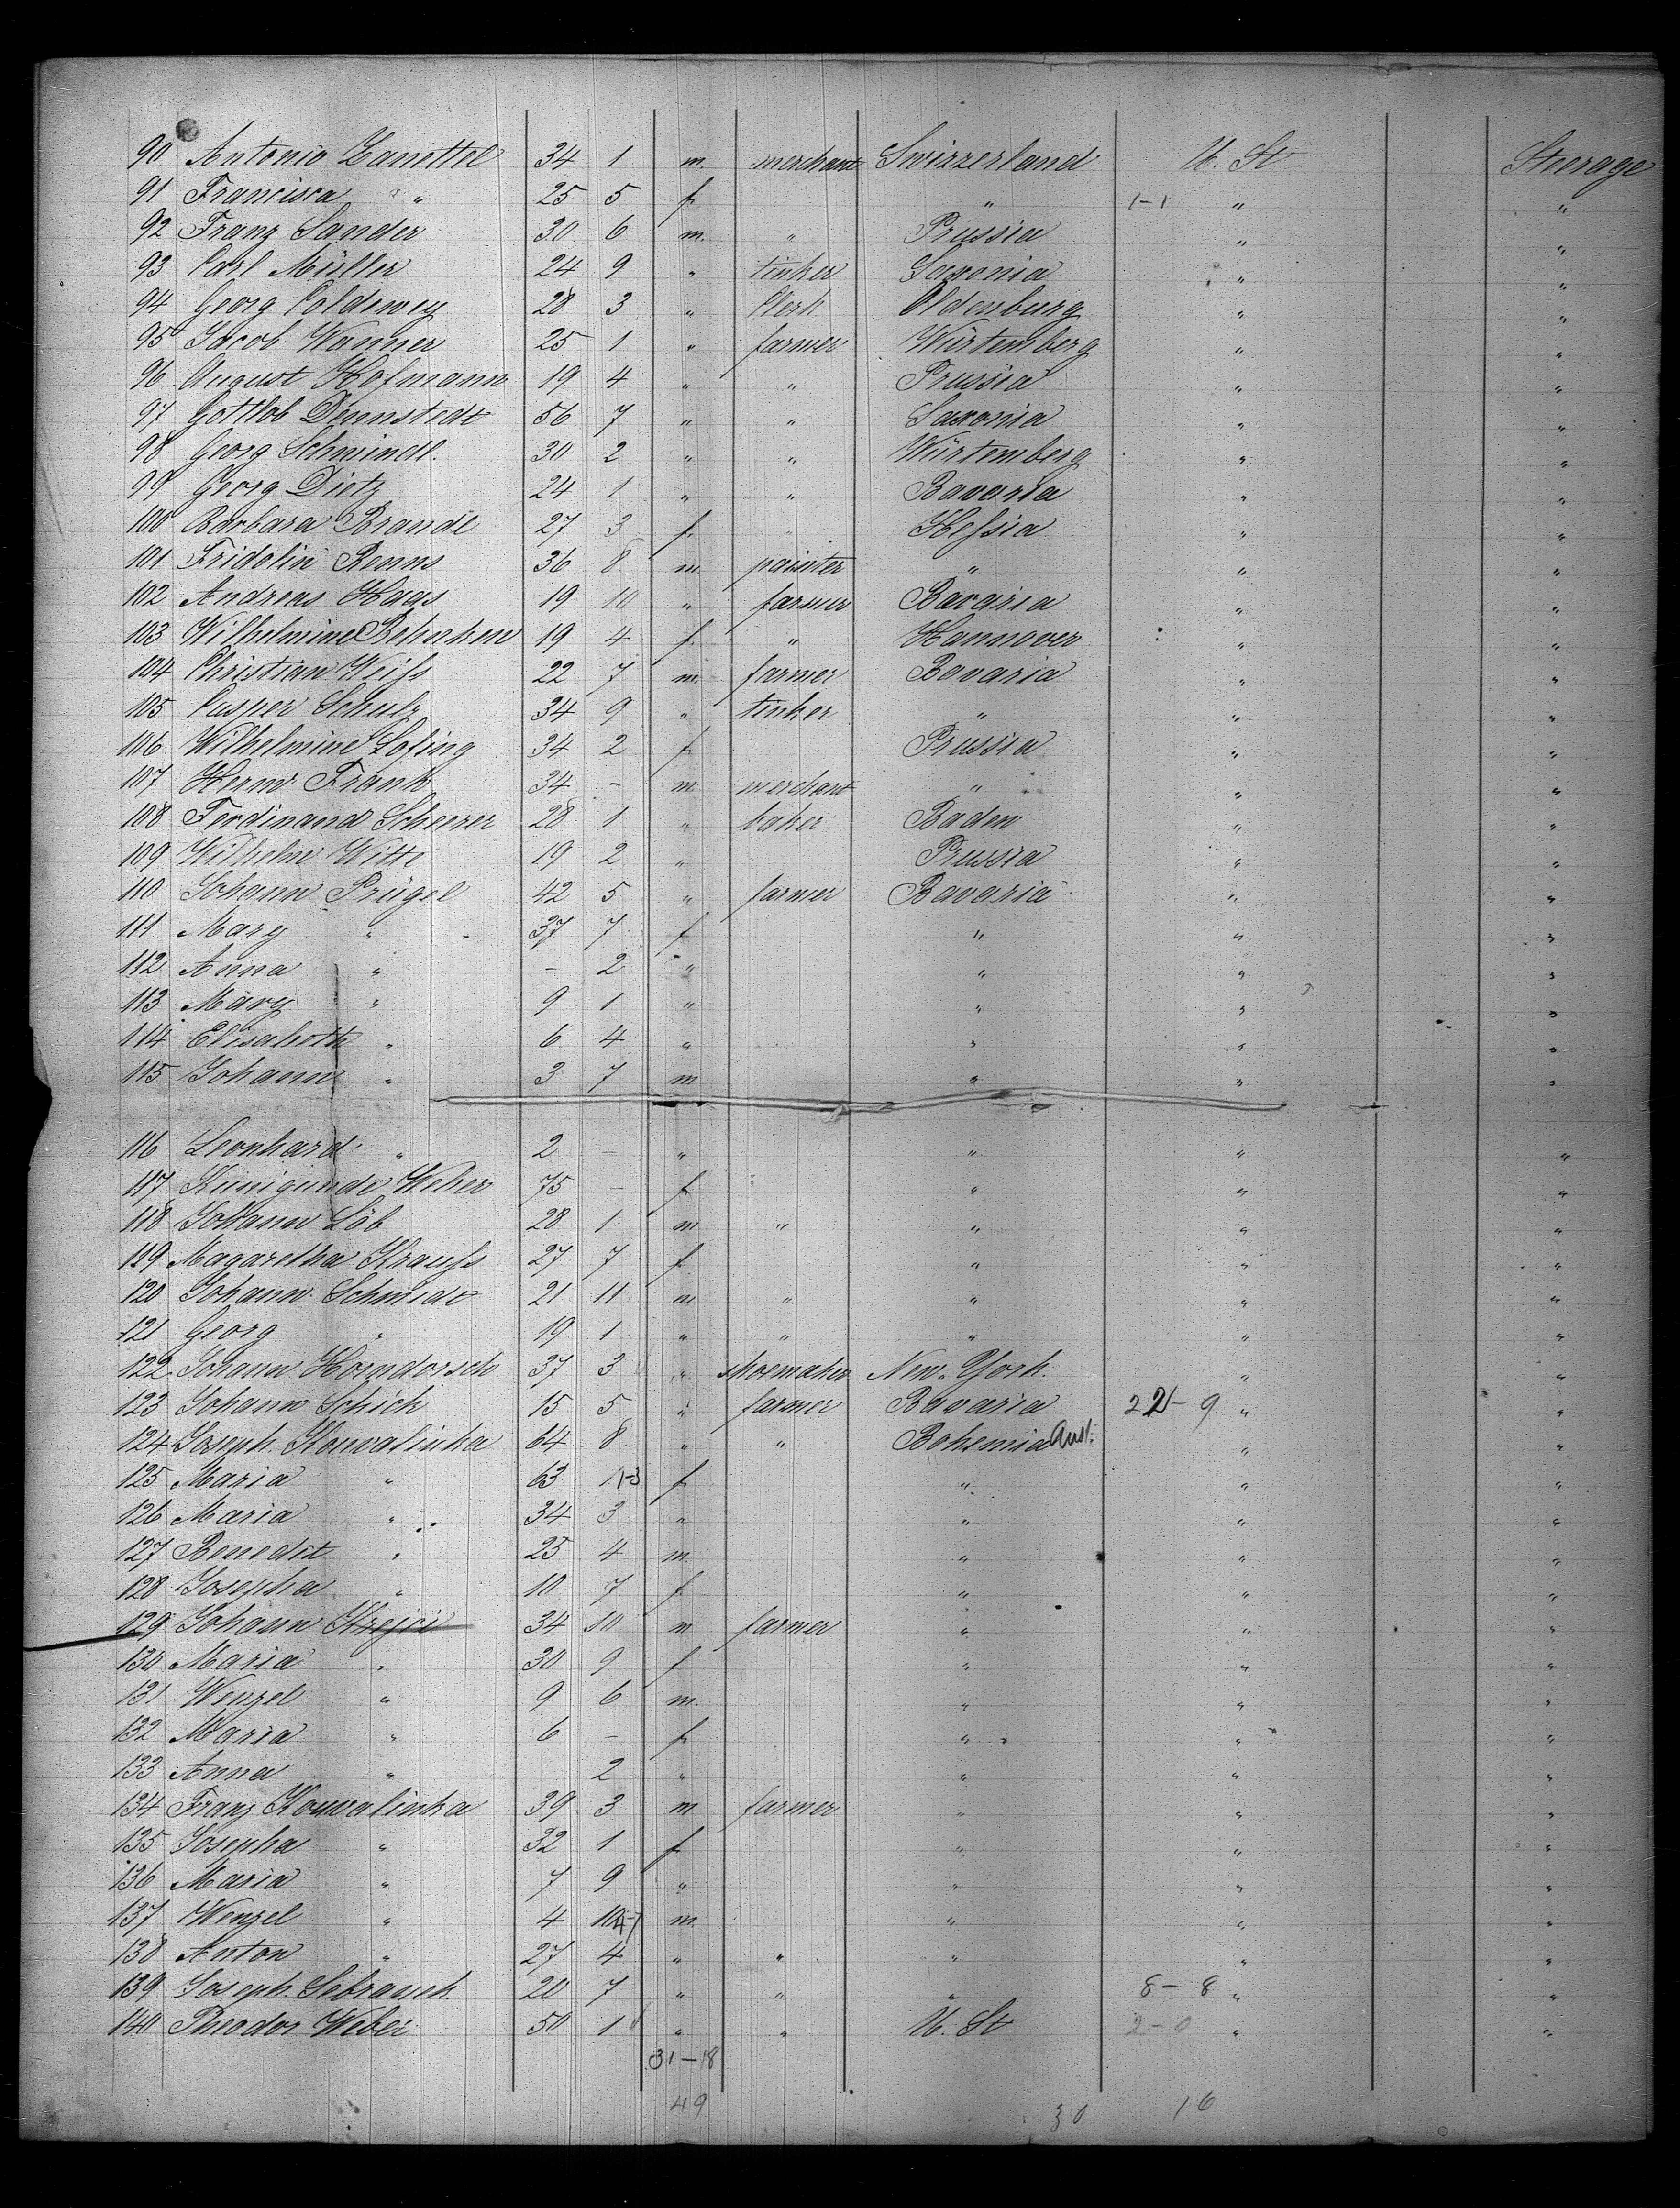 90 Antonio Zanottel 34 1 m. merchant Swizzerland U. St Steerage
91 Francisca " 25 5 f. " 1-1 " "
92 Franz Sander 30 6 m. " Prussia " "
93 Carl Müller 24 9 " tinker Saxonia " "
94 Georg Coldewey 28 3 " Clerk Oldenburg " "
95 Jacob Wanner 25 1 " farmer Würtemberg " "
96 August Hofmann 19 4 " " Prussia " "
97 Gottlob Dennstedt 56 7 " " Saxonia " "
98 Georg Schmindl. 30 2 " " Würtemberg " "
99 Georg Dietz 24 1 " " Bavaria " "
100 Barbara Brandt 27 3 f. " Hessia " "
101 Fridolin Renns 36 8 m painter " " "
102 Andreas Haas 19 10 " farmer Bavaria " "
103 Wilhelmine Behnken 19 4 f. " Hannover " "
104 Christian Weifs 22 7 m. farmer Bavaria " "
105 Casper Schulz 34 9 " tinker " " "
106 Wilhelmine Lofing 34 2 f. Prussia " "
107 Herm. Frank 34 - m merchant " " "
108 Ferdinand Scheerer 28 1 " baker Baden " "
109 Wilhelm Witte 19 2 " Prussia " "
110 Johann Prügel 42 5 " farmer Bavaria " "
111 Mary " 37 7 f " " "
112 Anna " - 2 " " " "
113 Mary " 9 1 " " " "
114 Elisabeth " 6 4 " " " "
115 Johann " 3 7 m " " "
116 Leonhard " 2 - " " " "
117 Kunigunde Weber 75 - f " " "
118 Johann Löb 28 1 m " " " "
119 Magaretha Kraufs 27 7 f " " "
120 Johann Schmidt 21 11 m " " " "
121 Georg " 19 1 " " " " "
122 Johann Horndorsch 37 3 " shoemaker New York. " "
123 Johann Schick 15 5 " farmer Bavaria 22-9 " "
124 Joseph Kouvalinka 64 8 " " Bohemia Aust. " "
125 Maria " 63 1 1-3 f " " "
126 Maria " 34 3 " " " "
127 Benedit " 25 4 m. " " "
128 Josepha " 10 7 f " " "
129 Johann Krejci 34 10 m farmer " " "
130 Maria " 30 9 f " " "
131 Wenzel " 9 6 m. " " "
132 Maria " 6 - f " " "
133 Anna " 2 " " " "
134 Franz Kouvalinka 39 3 m farmer " " "
135 Josepha " 32 1 f " " "
136 Maria " 7 9 " " " "
137 Wenzel " 4 10 4-7 m. " " "
138 Anton " 27 4 " " " " "
139 Joseph Sebranek 20 7 " " " 8-8 " "
140 Theodor Weber 50 1 " " U. St 2-0 " "
31-18
49 30 16